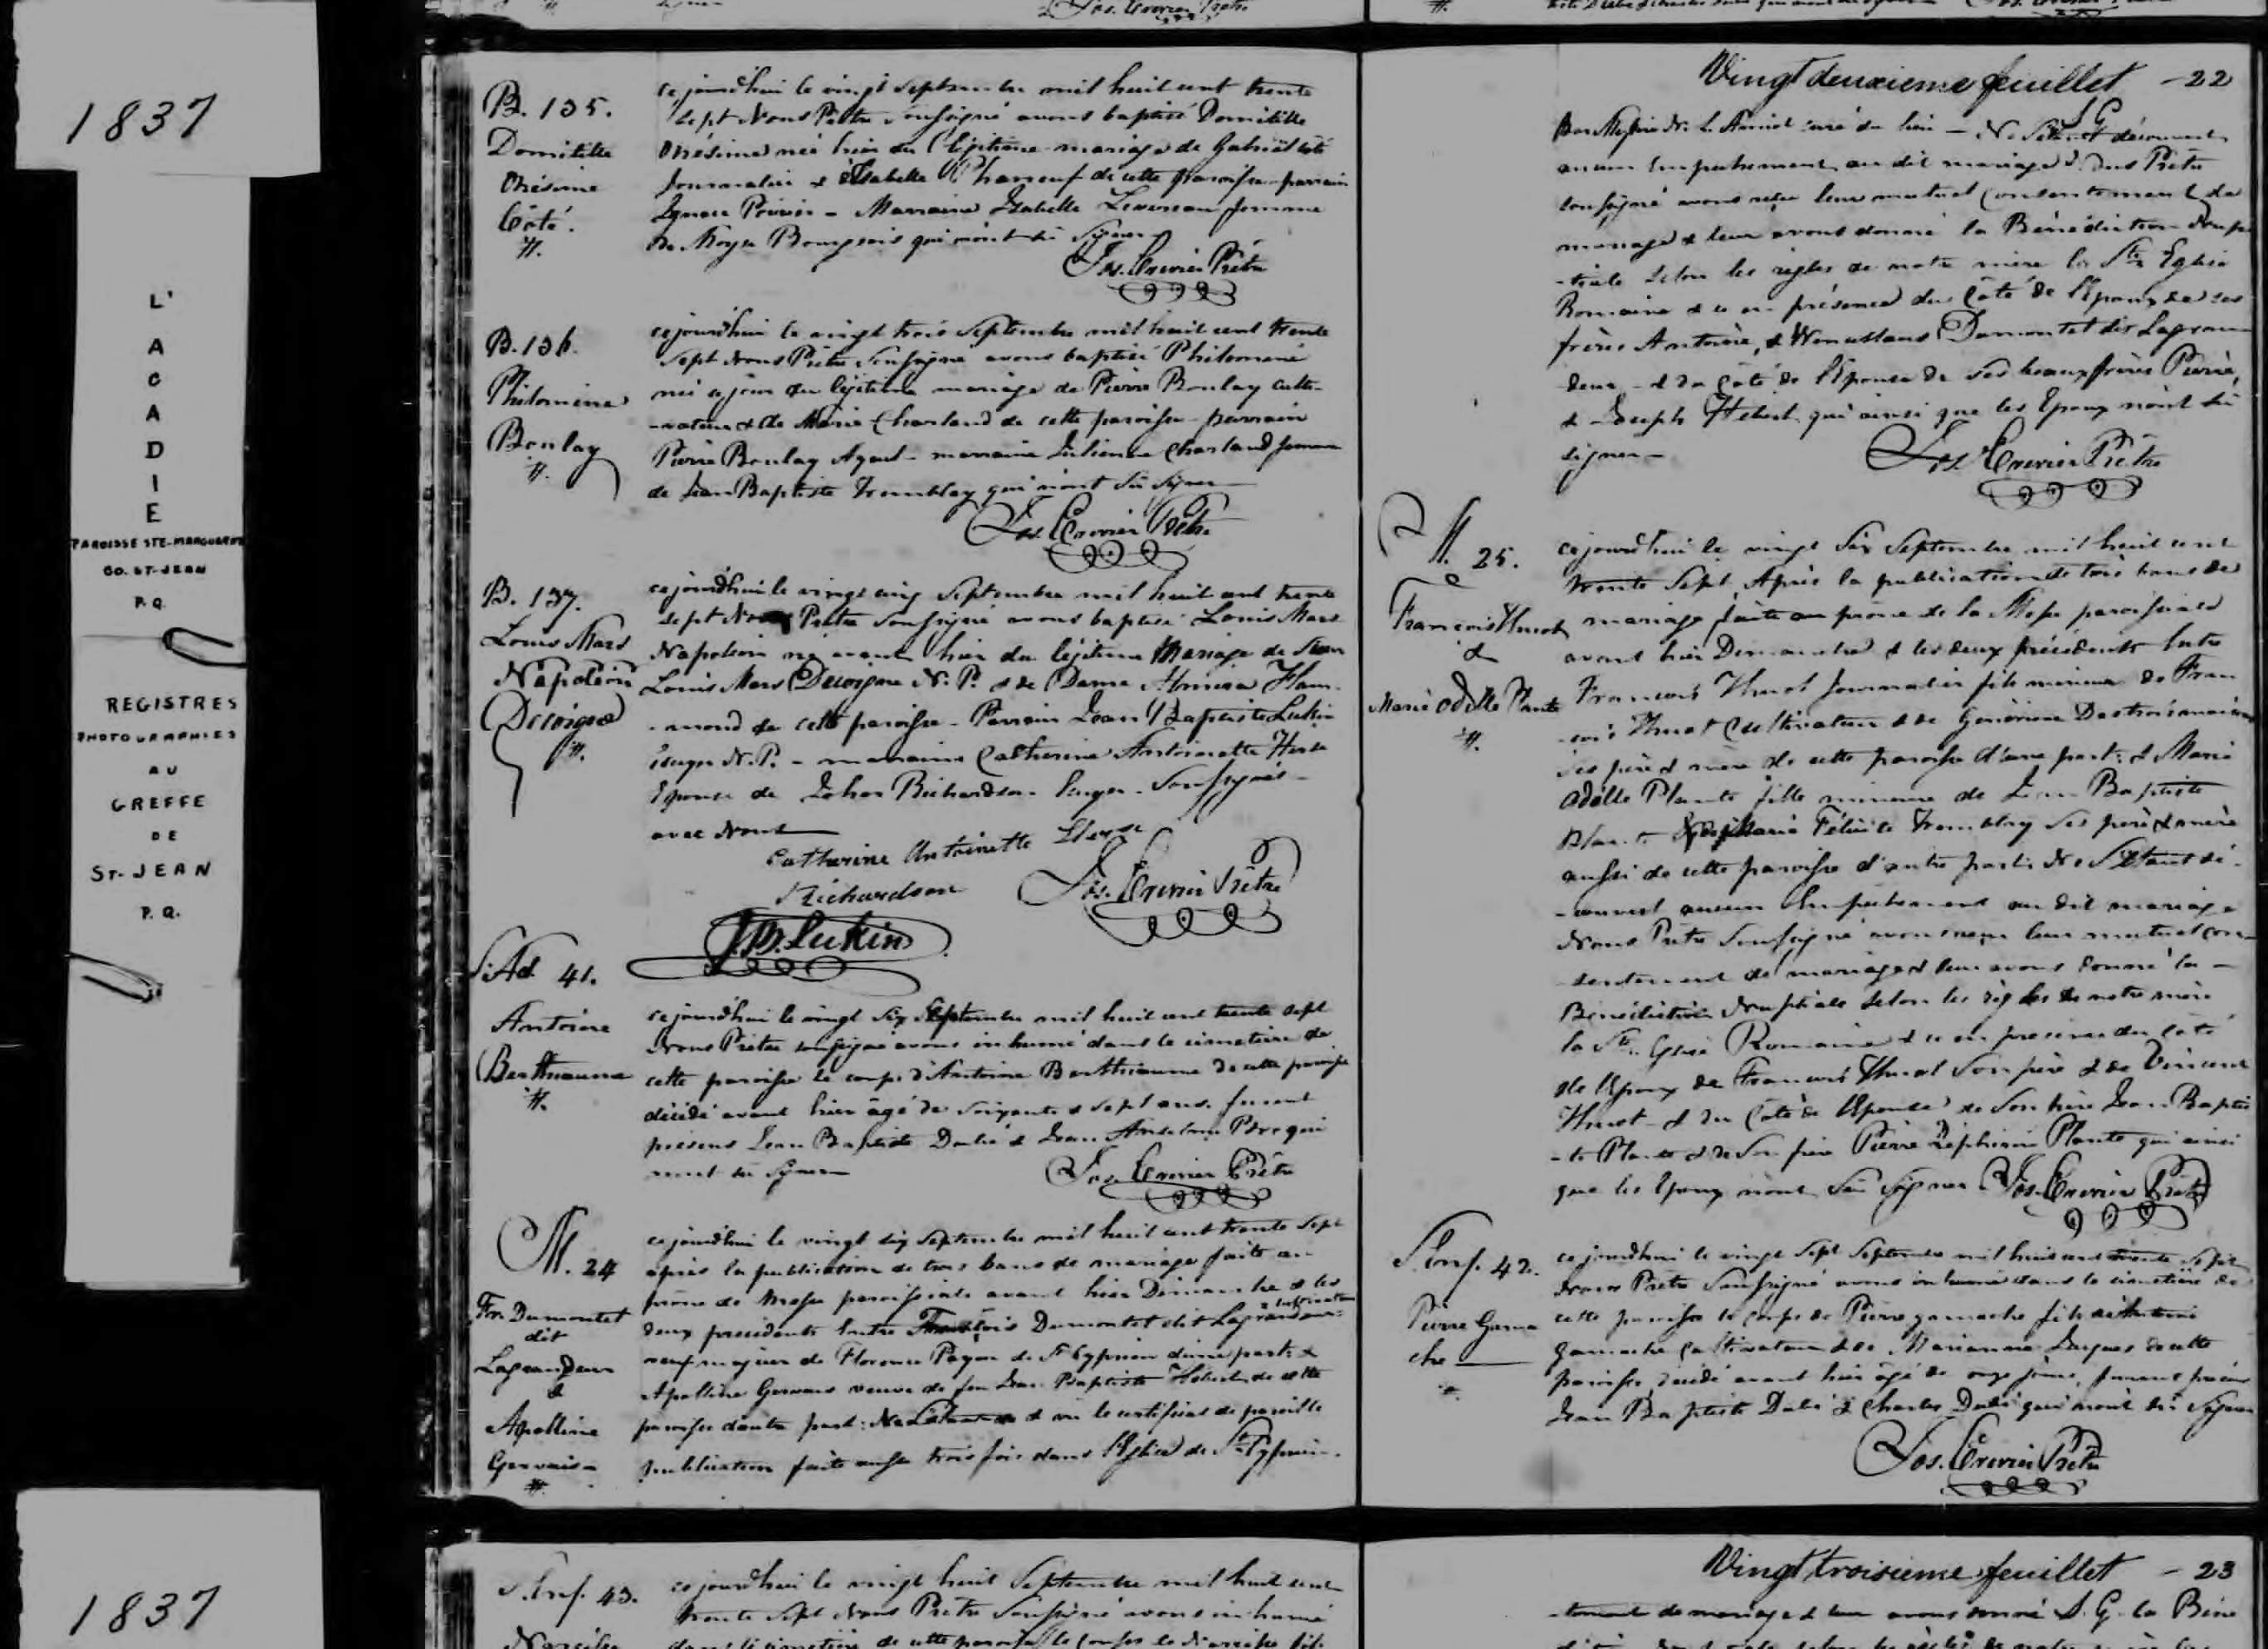 1837
L'
A
C
A
D
I
E
PAROISSE STE-MARGUERITE
CO. ST-JEAN
P.Q.
REGISTRES
PHOTOGRAPHIES
AU
GREFFE
DE
ST-JEAN
P.Q.
1837
Jos. Crevier Ptre
B. 135.
Domitille
Onésime
Côté.
cejourd'hui le vingt Septembre mil huit cent trente
sept Nous Prêtre Soussigné avons baptisé Domitille
Onésime née hier du légitime mariage de Gabriel Côté
Journalier & d'Isabelle Phaneuf de cette paroisse parrain
Ignace Poirier - Marraine Isabelle femme
de Moyse Bourgeois qui n'ont su signer
Jos. Crevier Prêtre
B. 136.
Philomène
Boulay
cejourd'hui le vingt trois Septembre mil huit cent trente
sept Nous Prêtre Soussigné avons baptisé Philomène
née ce jour du légitime mariage de Pierre Boulay culti-
-vateur & de Marie Charland de cette paroisse - parrain
Pierre Boulay Ayeul - marraine Julienne Charland femme
de Jean Baptiste Tremblay qui n'ont su signer
Jos. Crevier Prêtre
B. 137.
Louis Mars
Napoléon
Decoigne
cejourd'hui le vingt cinq Septembre mil huit cent trente
sept Nous Prêtre Soussigné avons baptisé Louis Mars
Napoléon né avant hier du légitime Mariage de Sieur
Louis Mars Decoigne N.P. & de Dame Almira Ham-
-mond de cette paroisse - Parrain Jean Baptiste Lukin
Ecuyer N.P. - marraine Catherine Antoinette Herse
Epouse de John Richardson Ecuyer - Soussignés -
avec Nous
Catherine Antoinette Herse
Richardson
Jos. Crevier Prêtre
J.B. Lukin
S. Ad 41.
Antoine
Berthiaume
cejourd'hui le vingt six Septembre mil huit cent trente sept
Nous Prêtre soussigné avons inhumé dans le cimetière de
cette paroisse le corps d'Antoine Berthiaume de cette paroisse
décédé avant hier âgé de soixante & sept ans. furent
présens Jean Baptiste Dubé & Jean Anselme qui
n'ont su signer
Jos. Crevier Prêtre
M. 24
Frs. Dumontet
dit
Lagrandeur
&
Apolline
Gervais -
cejourd'hui le vingt six Septembre mil huit cent trente sept
après la publication de trois bans de mariage faite au
prône de Messe paroissiale avant hier Dimanche & les
deux précédents Entre François Dumontet dit Lagrandeur cultivateur
veuf majeur de Florence Payan de St Cyprien d'une part: &
Apolline Gervais veuve de feu Jean Baptiste Hébert de cette
paroisse d'autre part: & vu le certificat de pareille
publication faite aussi trois fois dans l'Eglise de St Cyprien.
Vingt deuxième feuillet - 22
S G
Par Messire curé du lieu - Ne s'étant découvert
aucun Empêchement au dit mariage Nous Prêtre
soussigné avons reçu leur mutuel consentement de
mariage & leur avons donné la Bénédiction Nup-
-tiale selon les règles de notre mère la Ste Eglise
Romaine & ce en présence du côté de l'Epoux de ses
frères Antoine, & Wenceslaus Dumontet dit Lagran-
deur - & du côté de l'Epouse de ses beaux frères Pierre,
& Joseph Hébert qui ainsi que les Epoux n'ont su
signer -
Jos. Crevier Prêtre
M. 25.
François Huot
&
Marie Odelle Plante
cejourd'hui le vingt six Septembre mil huit cent
trente sept Après la publication de trois bans de
mariage faite au prône de la Messe paroissiale
avant hier Dimanche & les deux précédents Entre
François Huot Journalier fils mineur de Fran-
-çois Huot Cultivateur & de Geneviève Destroismaisons
ses père & mère de cette paroisse d'une part: & Marie
Odelle Plante fille mineure de Jean Baptiste
Plante & de Marie Félicité Tremblay ses père & mère
aussi de cette paroisse d'autre part: Ne s'étant dé-
-couvert aucun Empêchement au dit mariage
Nous Prêtre Soussigné avons reçu leur mutuel con-
-sentement de mariage & leur avons donné la -
Bénédiction Nuptiale selon les règles de notre mère
la Ste. Eglise Romaine & ce en présence du côté
de l'Epoux de François Huot son père & de Vincent
Huot - & du côté de l'Epouse de son frère Jean Baptis-
-te Plante & de son frère Pierre Zéphirin Plante qui ainsi
que les Epoux n'ont su signer Jos. Crevier Prêtre
S. Enf. 42.
Pierre Gama
che
cejourd'hui le vingt sept Septembre mil huit cent trente sept
Nous Prêtre Soussigné avons inhumé dans le cimetière de
cette paroisse le corps de Pierre gamache fils de Antoine
Gamache Cultivateur & de Marianne de cette
paroisse décédé avant hier âgé de onze jours, furent présens
Jean Baptiste Dubé & Charles Dubé qui n'ont su signer
Jos. Crevier Prêtre
S. Enf. 43.
Narcisse
cejourd'hui le vingt huit Septembre mil huit cent
trente sept Nous Prêtre Soussigné avons inhumé
dans le cimetière de cette paroisse le corps de Narcisse fils
Vingt troisième feuillet - 23
-tement de mariage & leur avons donné S.G. la Béné